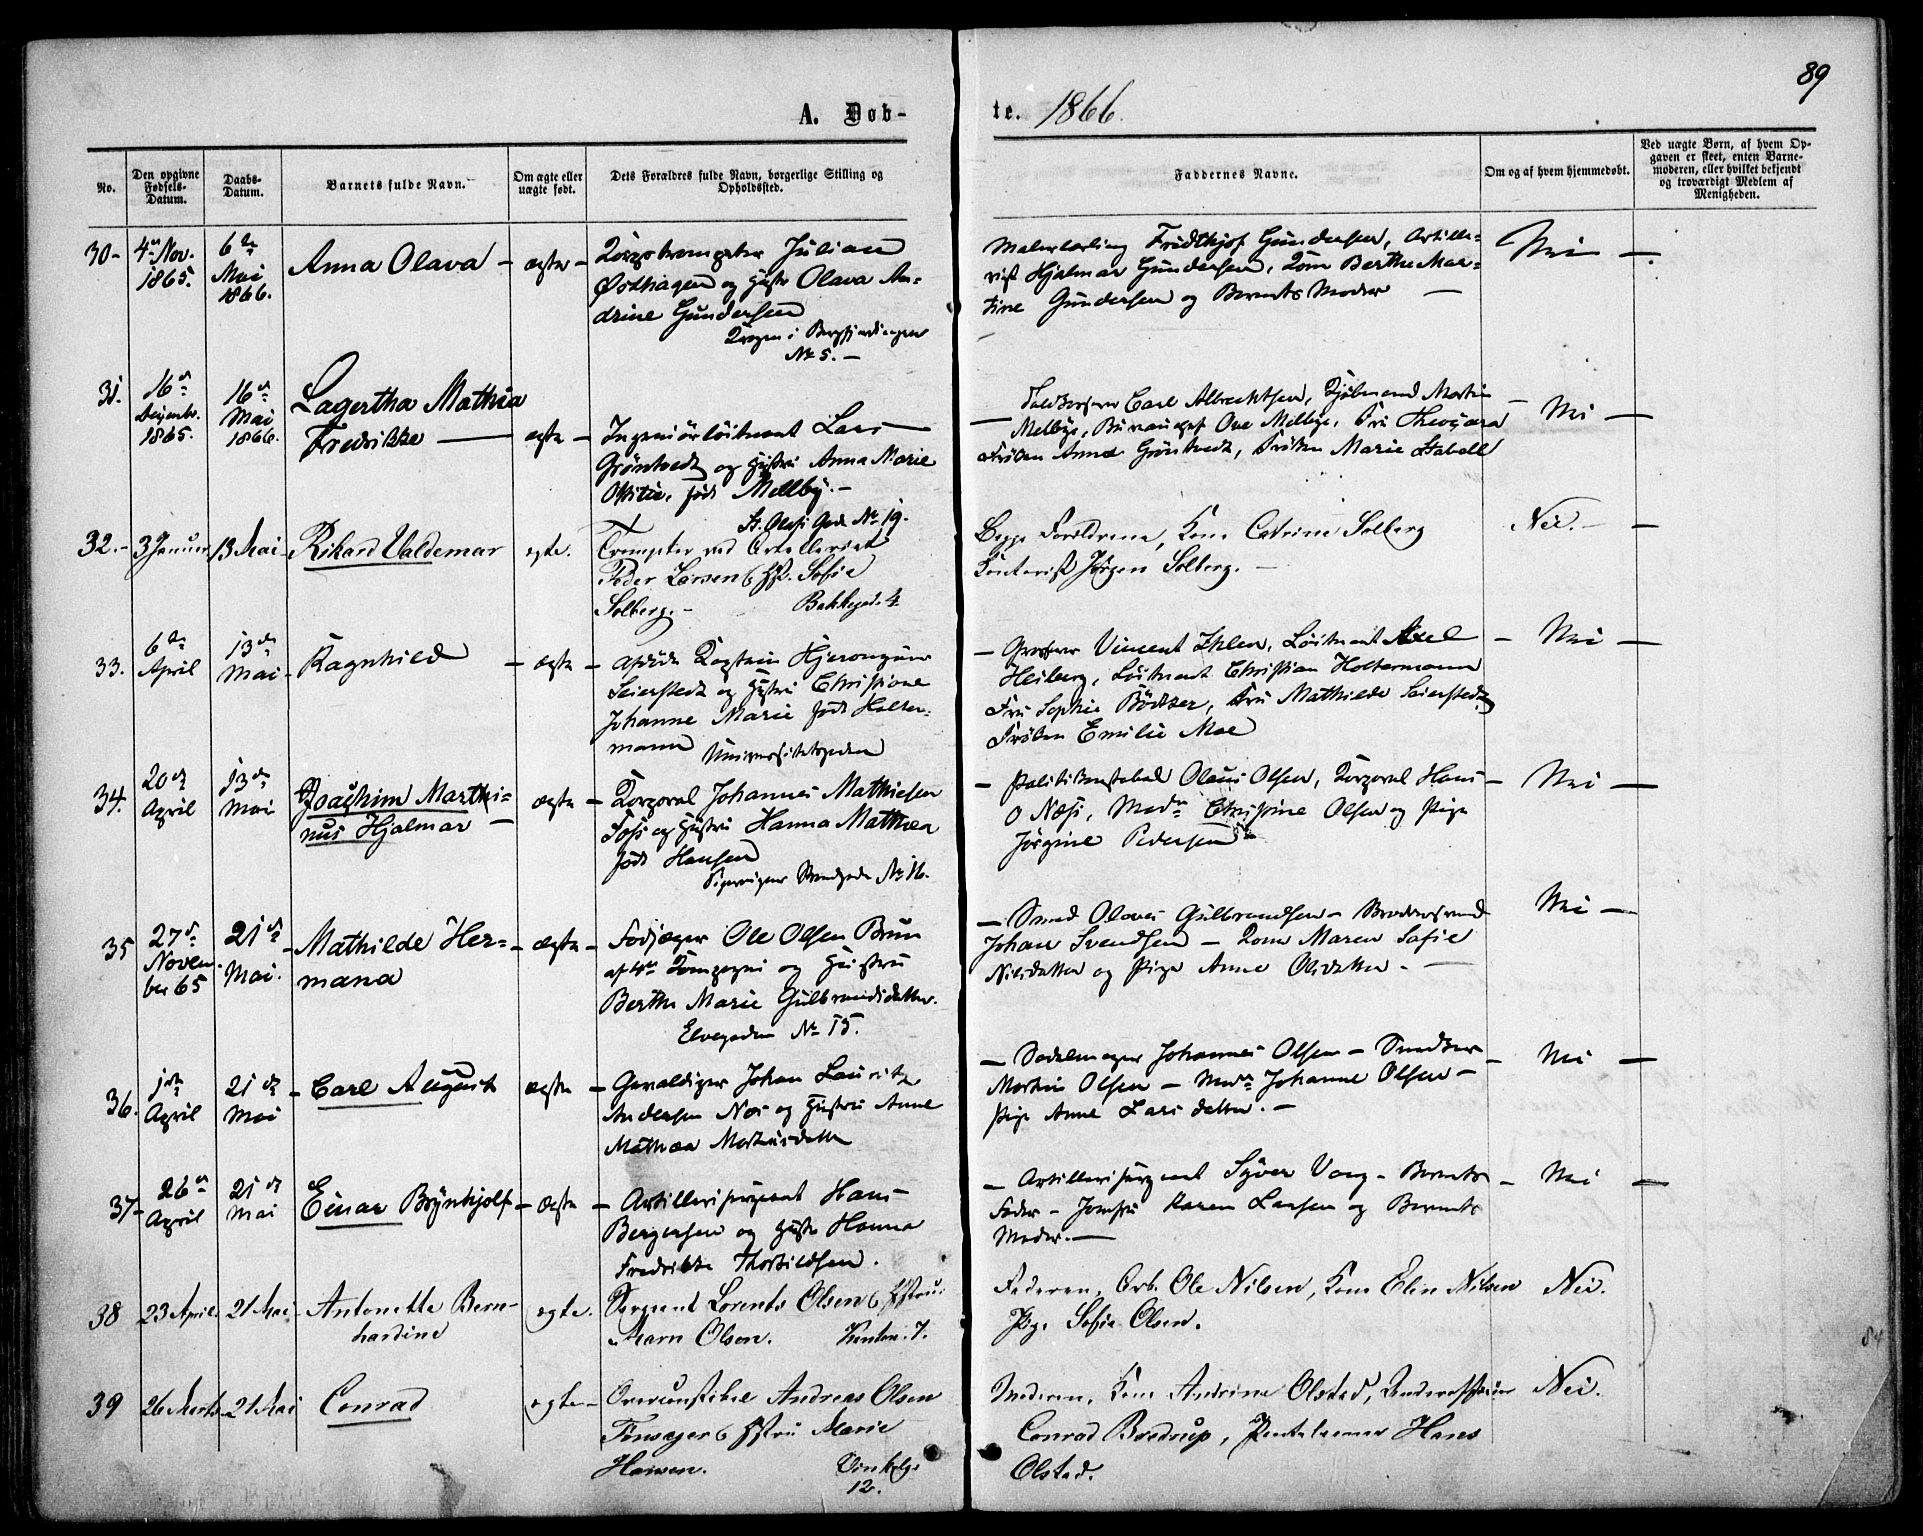 89
A. Døb-
te. 1866.
No.
Den opgivne Fødsels-Datum.
Daabs-Datum.
Barnets fulde Navn.
Om ægte eller uægte født.
Dets Forældres fulde Navn, borgerlige Stilling og Opholdssted.
Faddernes Navne.
Om og af hvem hjemmedøbt.
Ved uægte Børn, af hvem Opgaven er skeet, enten Barnemoderen, eller hvilket bekjendt og troværdigt Medlem af Menigheden.
30- 4de Nov. 1865. 6te Mai 1866. Anna Olava - ægte -
Julian
Østhagen og Hustr Olava An-
drine Gundersen
No 5. -
Fridthjof Gundersen, Artille-
rist Hjalmar Gundersen, Kone Berthe Mar-
tine Gundersen og Barnets Moder -
Nei -
31. 16de Decembr. 1865. 16de Mai 1866. Lagertha Mathea
Fredrikke - ægte -
Ingeniørløitnant Lars
Grøntvedt og Hustru Anna Marie
født Mellby. -
St. Olafs Gade No 19.
Carl Albrechtsen, Kjøbmand Martin
Melbye, Ove Melbye, Fru
Frøken Anna Grøntvedt, Frøken Marie Stabell
Nei -
32. - 3 Januar 13 Mai - Rikard Valdemar egte.
Trompeter ved Artilleriet
Peder Larsen & Hst. Sofie
Solberg. - Bakkegad. 4
Begge Forældrene, Kone Catrine Solberg
Kontorist Jørgen Solberg. -
Nei. -
33. 6te April 13de Mai - Ragnhild - ægte -
Kaptein
Seierstedt og Hustru Christiane
Johanne Marie født Holter-
mann Universitetsgaden
- Vincent Ihlen, Løitnant Axel
Heiberg, Løitnant Christian Holtermann
Fru Sophie Bødtker, Fru Mathilde Seierstedt,
Frøken Emilie Moe
- Nei -
34. 20de April 13de Mai Joachim Marthi-
nus Hjalmar - ægte -
Korporal Johannes Mathiesen
Foss og Hustru Hanna Mathea
født Hansen
No 16.
- Politikonstabel Olaus Olsen, Korporal Hans
O Næss, Madm Christine Olsen og Pige
Jørgine Pedersen
- Nei -
35 27de November 65 21de Mai. - Mathilde Her-
mana - ægte -
Fodjæger Ole Olsen Brun
af 4de Kompagni og Hustru
Berthe Marie Gulbrandsdatter.
Elvegaden No 15.
- Smed Olaves Gulbrandsen -
Johan Svendsen - Kone Maren Sofie
Nilsdatter og Pige Anne Olsdatter. -
Nei -
36. 1ste April 21de Mai - Carl August ægte -
Gevaldiger Johan Lauritz
Andersen Næs og Hustru Anne
Mathea
- Sadelmager Johannes Olsen -
Martin Olsen - Madm Johanne Olsen -
Pige Anne Larsdatter. -
- Nei -
37- 26de April 21de Mai Einar Brynhjolf - ægte
- Artillerisergeant Hans
Bergersen og Hustr Hanna
Fredrikke
- Artillerisergeant Syver Vang - Barnets
Fader - Jomfru Karen Larsen og Barnets
Moder. -
- Nei -
38 23 April. 21 Mai Antonette Bern-
hardine egte.
Sergeant Lorents Olsen & Hstru:
Maren Olsen. 7.
Faderen, Arb. Ole Nilsen, Kone Elin Nilsen
Pige Sofie Olsen.
Nei.
39 26 Marts - 21 Mai Conrad egte -
Andreas Olsen
& Hstru Marie
Hansen. Vinkelg.
12.
Moderen, Kone Andrine Olstad,
Conrad Bredrup, Hans
Olstad.
Nei.
84